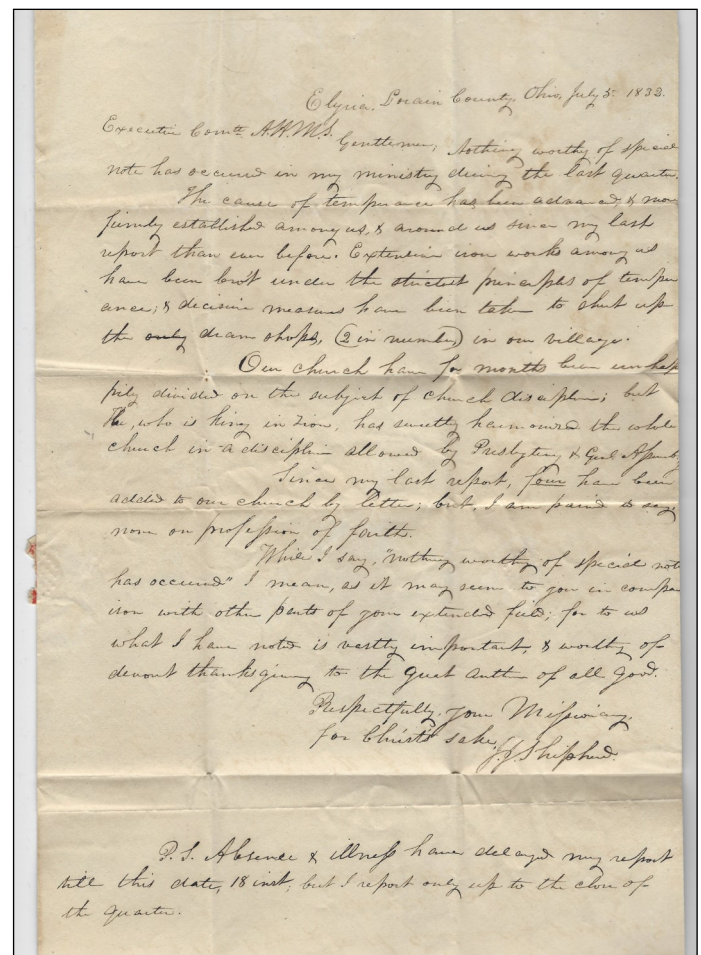 Elyria, Lorain County, Ohio, July 5. 1832.
Executive Comtt. A.H.M.S.
Gentlemen; Nothing worthy of special
note has occured in my ministry during the last quarter.
The cause of temperance has been advanced, & more
firmly established among us, & around us since my last
report than ever before. Extensive iron works among us
have been bro't under the strictest principles of temper
ance; & decisive measures have been taken to shut up
the only dram shops, (2 in number) in our village.
Our church have for months been unhap
pily divided on the subject of church discipline; but
He, who is king in Zion, has sweetly harmonized the whole
church in a discipline allowed by Presbytery & Genl Assembly
Since my last report, four have been
added to our church by letter; but, I am pained to say
none on profession of faith.
While I say, "nothing worthy of special note
has occured" I mean, as it may seem to you in compar
ison with other parts of your extended field; for to us
what I have noted is vastly important, & worthy of
devout thanksgiving to the great Author of all good.
Respectfully, your Missionary,
for Christ's sake,
J.J. Shipherd.
P.S. Absence & illness have delayed my report
till this date, 18 inst; but I report only up to the close of
the quarter.